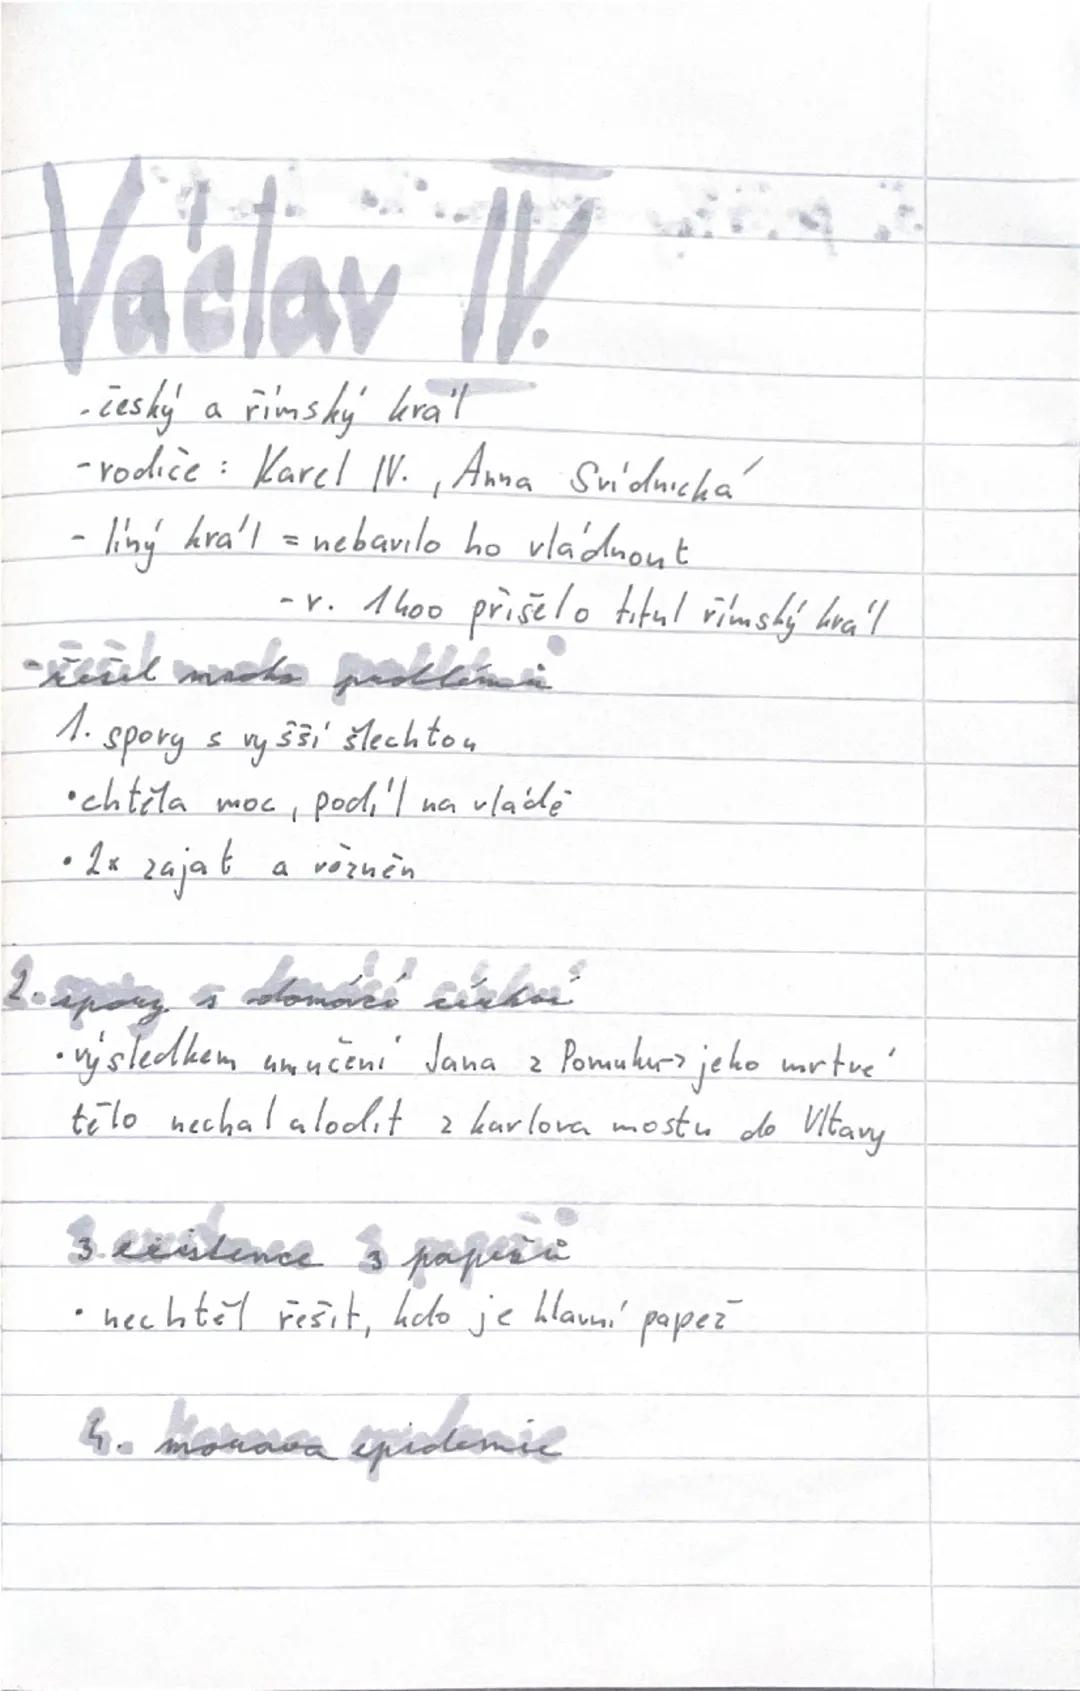 Václav IV.
- český a římský král
- rodiče : Karel IV. , Anna Svídnická
- líný král = nebavilo ho vládnout
- r. 1400 přišelo titul římský král
- řešil mnoho problémů
1. spory s vyšší šlechtou
• chtěla moc, podíl na vládě
• 2x zajat a vězněn
2. spory s domácí církví
• výsledkem umučení Jana z Pomuku → jeho mrtvé
tělo nechal alodit z karlova mostu do Vltavy
3. existence 3 papežů
• nechtěl řešit, kdo je hlavní papež
4. morová epidemie